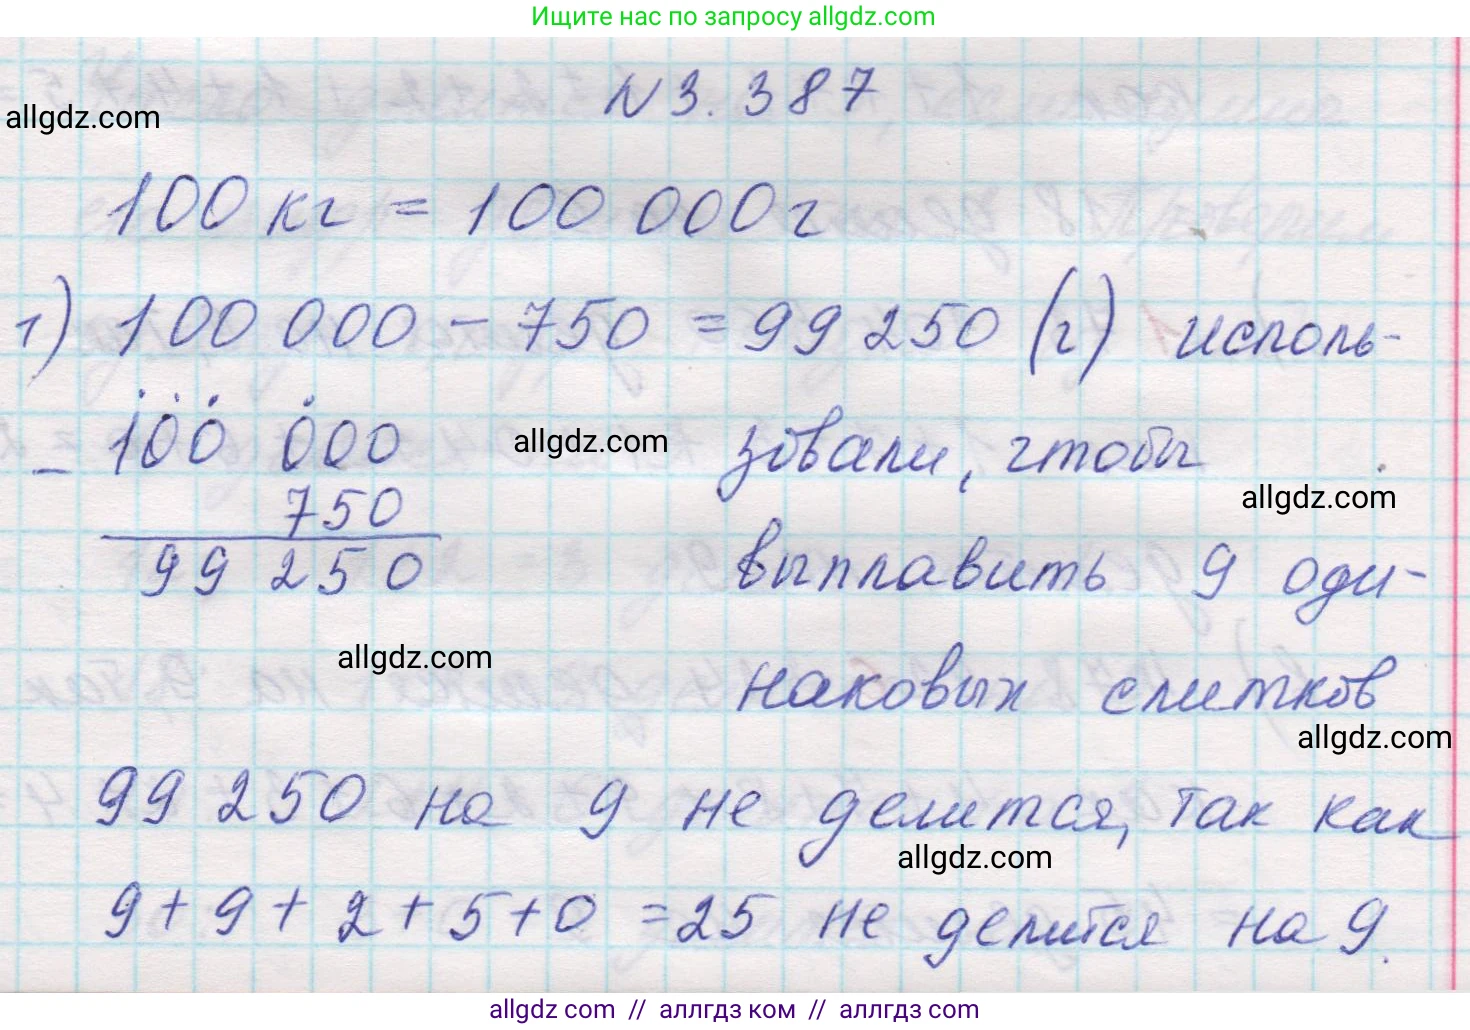 Ищите нас по запросу allgdz.com
N 3.387
allgdz.com
100 кг = 100 000 г
1) 100 000 - 750 = 99 250 (г) исполь-
- 100 000
allgdz.com
зовали, чтобы
allgdz.com
750
99 250
выплавить 9 оди-
allgdz.com
наковых слитков
allgdz.com
99 250 на 9 не делится, так как
allgdz.com
9+9+2+5+0=25 не делится на 9.
allgdz com // аллгдз ком // аллгдз com